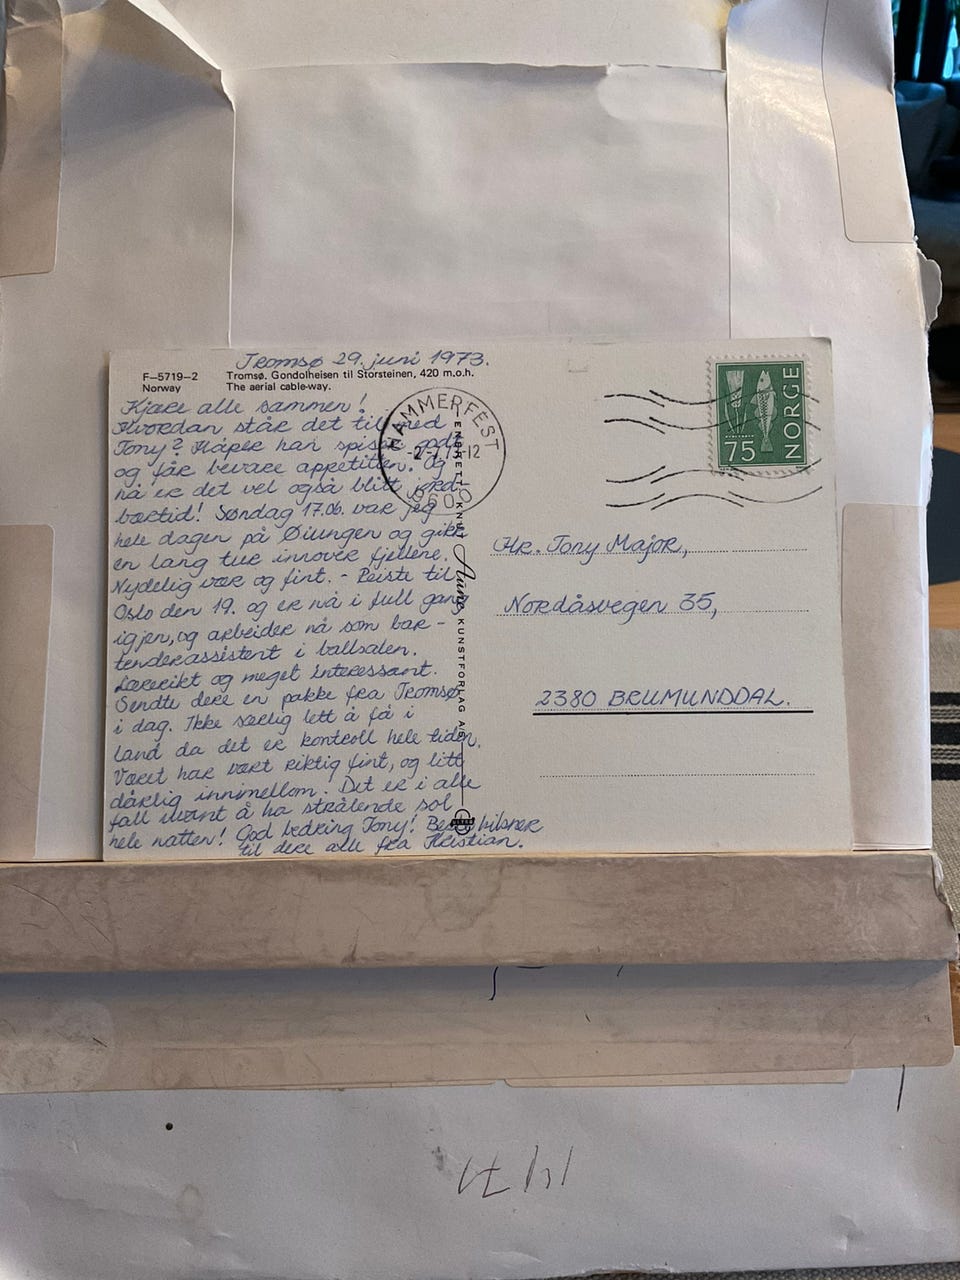 Tromsø 29. juni 1973.
F–5719–2
Norway
Tromsø. Gondolheisen til Storsteinen, 420 m.o.h.
The aerial cable-way.
Kjære alle sammen!
Hvordan står det til med
Tony? Håper han spiser godt
og får bevare appetitten. Og
nå er det vel også blitt jord-
bærtid! Søndag 17.06. var jeg
hele dagen på Øiungen og gikk
en lang tur innover fjellene.
Nydelig vær og fint. - Reiste til
Oslo den 19. og er nå i full gang
igjen, og arbeider nå som bar-
tenderassistent i ballsalen.
Lærerikt og meget interessant.
Sendte dere en pakke fra Tromsø
i dag. Ikke særlig lett å få i
land da det er kontroll hele tiden.
Været har vært riktig fint, og litt
dårlig innimellom. Det er i alle
fall uvant å ha strålende sol
hele natten! God bedring Tony! Beste hilsner
til dere alle fra Kristian.
HAMMERFEST
-2-7.73-12
960
ENERETT:
KUNSTFORLAG A/S
Aune
NORGE
75
Hr. Tony Major,
Nordåsvegen 35,
2380 BRUMUNDDAL.